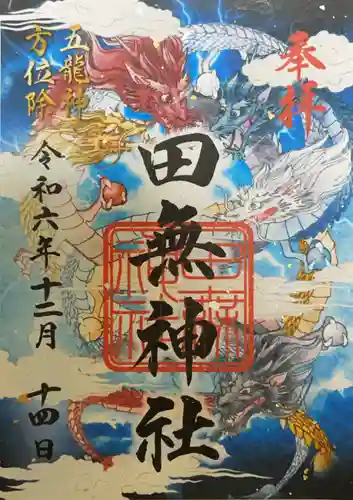 奉拝
田無神社
五龍神
方位除
令和六年十二月 十四日
田無神社